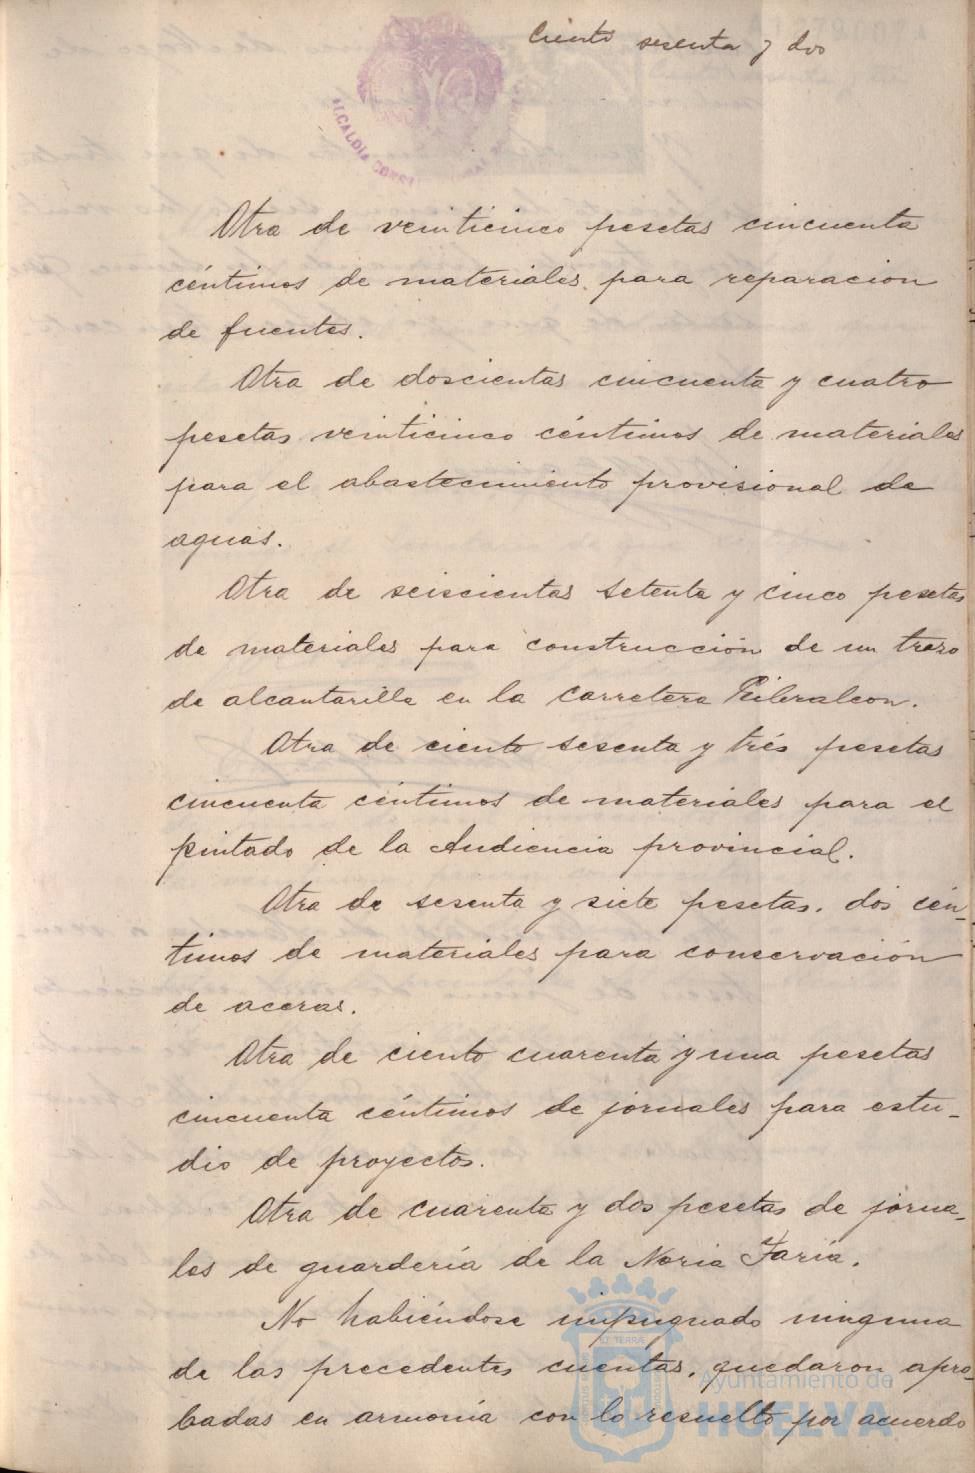 Ciento sesenta y dos
ALCALDIA CONST
Otra de veinticinco pesetas cincuenta
céntimos de materiales para reparacion
de fuentes.
Otra de doscientas cincuenta y cuatro
pesetas veinticinco céntimos de materiales
para el abastecimiento provisional de
aguas.
Otra de seiscientas setenta y cinco pesetas
de materiales para construcción de un trozo
de alcantarilla en la carretera Gibraleon.
Otra de ciento sesenta y trés pesetas
cincuenta céntimos de materiales para el
pintado de la Audiencia provincial.
Otra de sesenta y siete pesetas, dos cén-
timos de materiales para conservación
de aceras.
Otra de ciento cuarenta y una pesetas
cincuenta céntimos de jornales para estu-
dio de proyectos.
Otra de cuarenta y dos pesetas de jorna-
les de guardería de la Noria Faria.
No habiéndose impugnado ninguna
de las precedentes cuentas, quedaron apro-
badas en armonía con lo resuelto por acuerdo
Ayuntamiento de
HUELVA